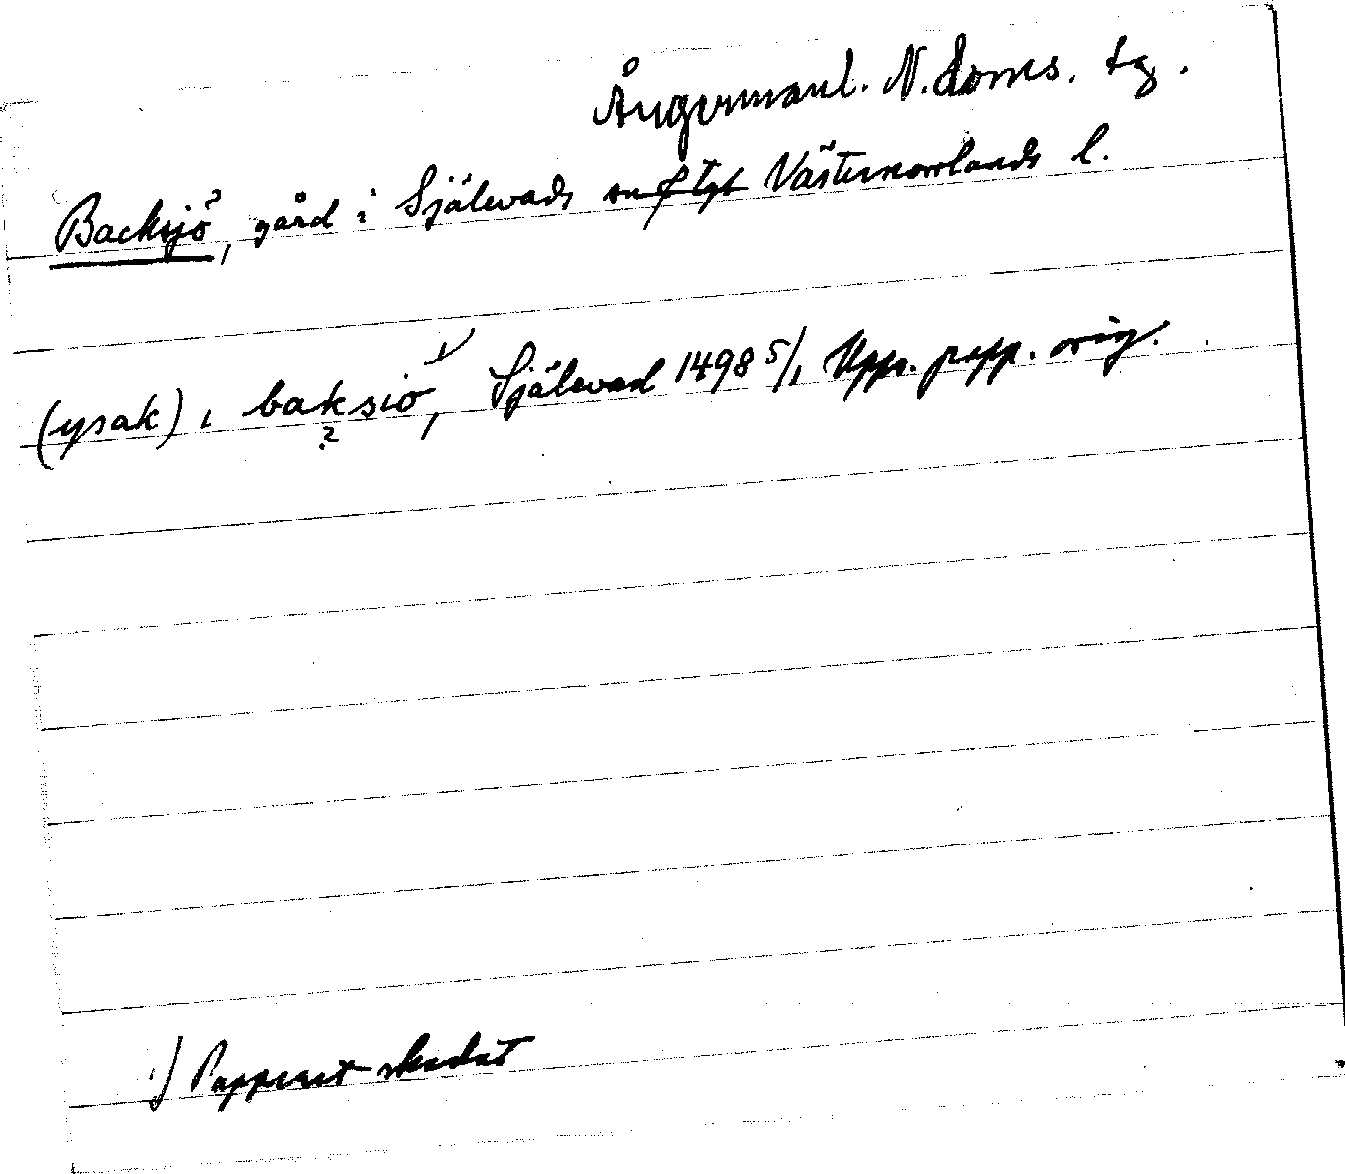 Ångermanl. N. doms. tg.
Backsjö?, gård i Själevads sn Västernorrlands l.
(ysak) i baksio 1), Själevad 1498 5/1 Upps. papp. orig.
?
1) Papperet skadat